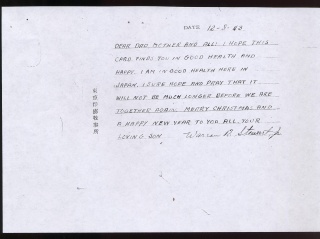 DATE 12-8-43
DEAR DAD, MOTHER AND ALL: I HOPE THIS
CARD FINDS YOU IN GOOD HEALTH AND
HAPPY. I AM IN GOOD HEALTH HERE IN
JAPAN. I SURE HOPE AND PRAY THAT IT
WILL NOT BE MUCH LONGER BEFORE WE ARE
TOGETHER AGAIN. MERRY CHRISTMAS AND
A HAPPY NEW YEAR TO YOU ALL, YOUR
LOVING SON. Warren B. Stewart Jr.
東京俘虜収容所